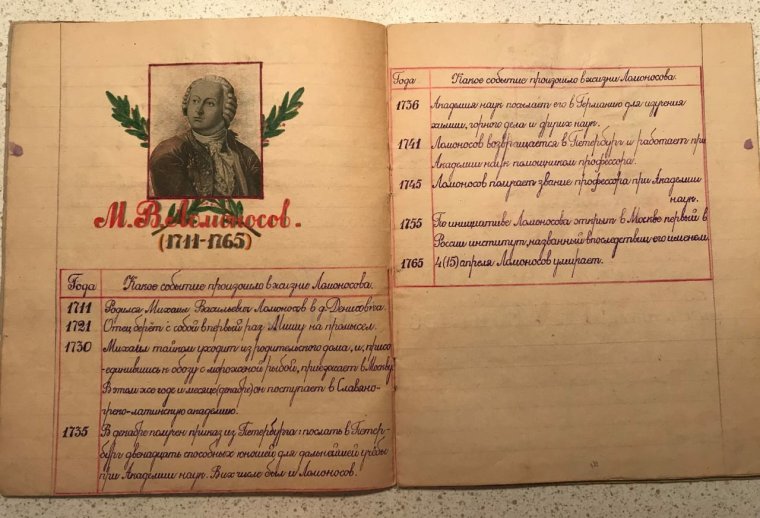 М. В. Ломоносов.
(1711-1765)
Года Какое событие произошло в жизни Ломоносова.
1711 Родился Михаил Васильевич Ломоносов в д. Денисовка.
1721 Отец берёт с собой в первый раз Мишу на промысел.
1730 Михаил тайком уходит из родительского дома, и, присо-
единившись к обозу с мороженой рыбой, приезжает в Москву.
В этом же годе и месяце (декабре) он поступает в Славяно-
греко-латинскую академию.
1735 В декабре получен приказ из Петербурга: послать в Петер-
бург двенадцать способных юношей для дальнейшей учёбы
при Академии наук. В их числе был и Ломоносов.
Года Какое событие произошло в жизни Ломоносова.
1736 Академия наук посылает его в Германию для изучения
химии, горного дела и других наук.
1741 Ломоносов возвращается в Петербург и работает при
Академии наук помощником профессора.
1745 Ломоносов получает звание профессора при Академии
наук.
1755 По инициативе Ломоносова открыт в Москве первый в
России институт, названный впоследствии его именем.
1765 4(15) апреля Ломоносов умирает.